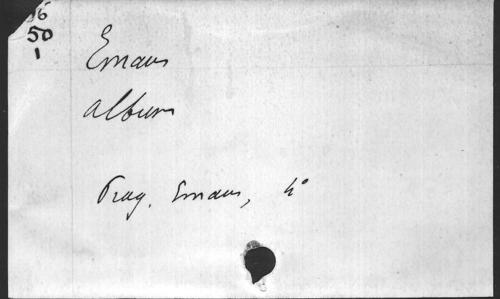 96
50
1
Emaus
album
Prag. Emaus, 4°